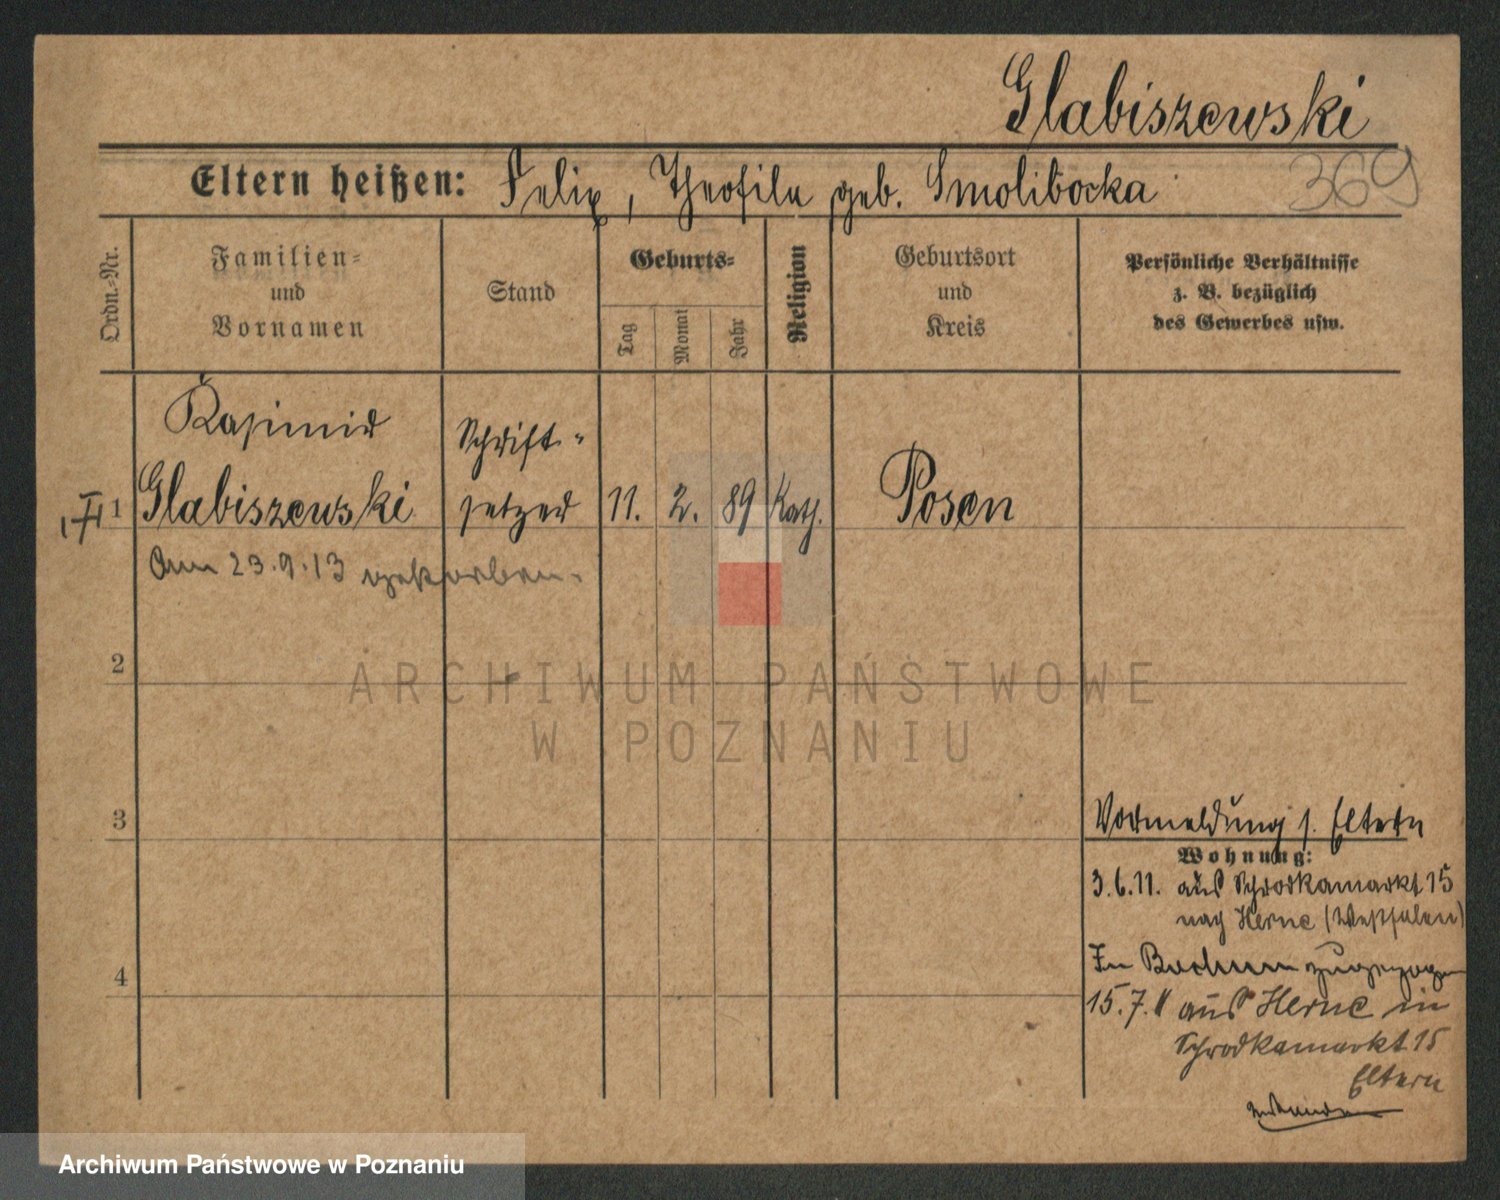 Glabiszewski
369
Eltern heißen: Felix, Theofila geb. Smolibocka
Ordn.-Nr.
Familien-
und
Vornamen
Stand
Geburts-
Tag
Monat
Jahr
Religion
Geburtsort
und
Kreis
Persönliche Verhältnisse
z. B. bezüglich
des Gewerbes usw.
Kasimir
Schrift-
1 Glabiszewski setzer 11. 2. 89 Kath. Posen
Am 23.9.13 gestorben.
2
ARCHIWUM PAŃSTWOWE
W POZNANIU
3
Vormeldung s. Eltern
Wohnung:
3.6.11. aus Schrodkamarkt 15
nach Herne (Westfalen)
4
In Bochum zugezogen
15.7.11 aus Herne in
Schrodkamarkt 15
Eltern
Archiwum Państwowe w Poznaniu